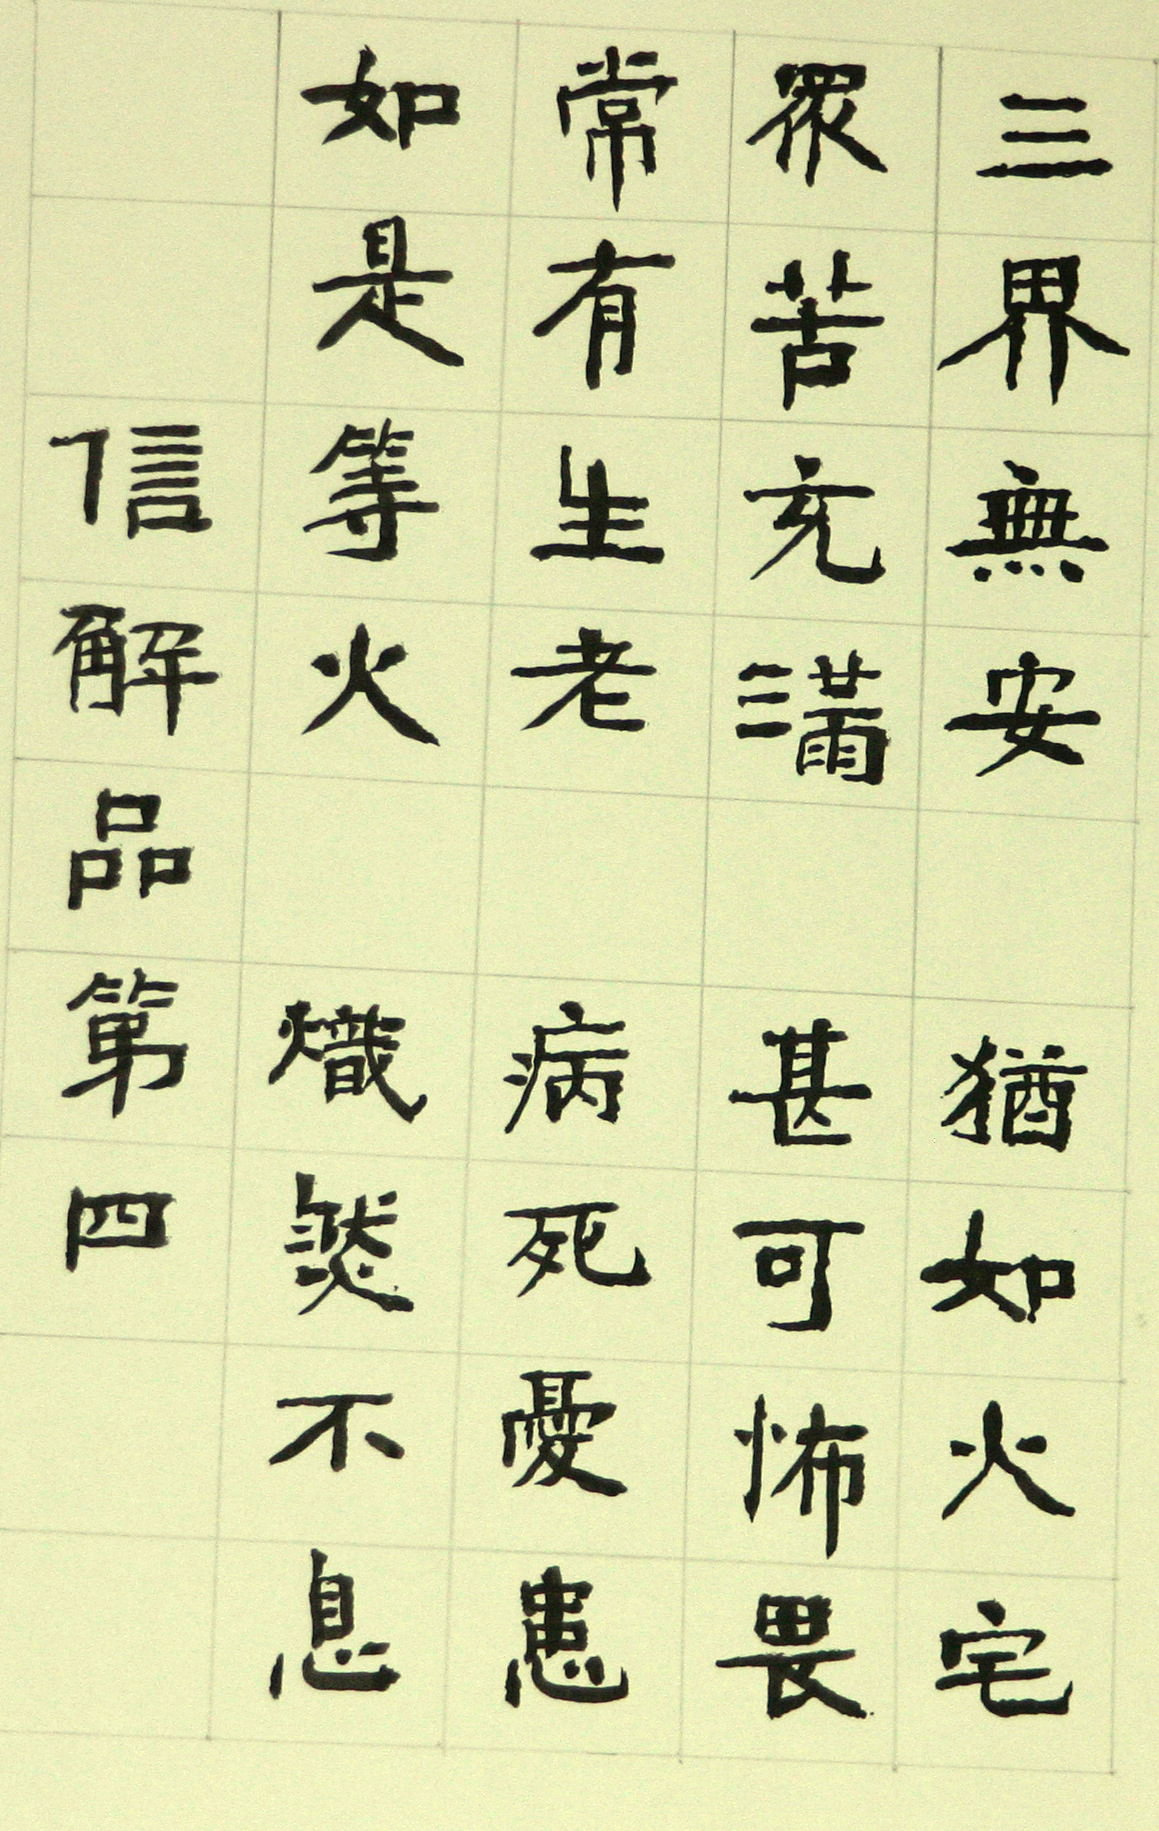 三界無安 猶如火宅
眾苦充滿 甚可怖畏
常有生老 病死憂患
如是等火 熾然不息
信解品第四